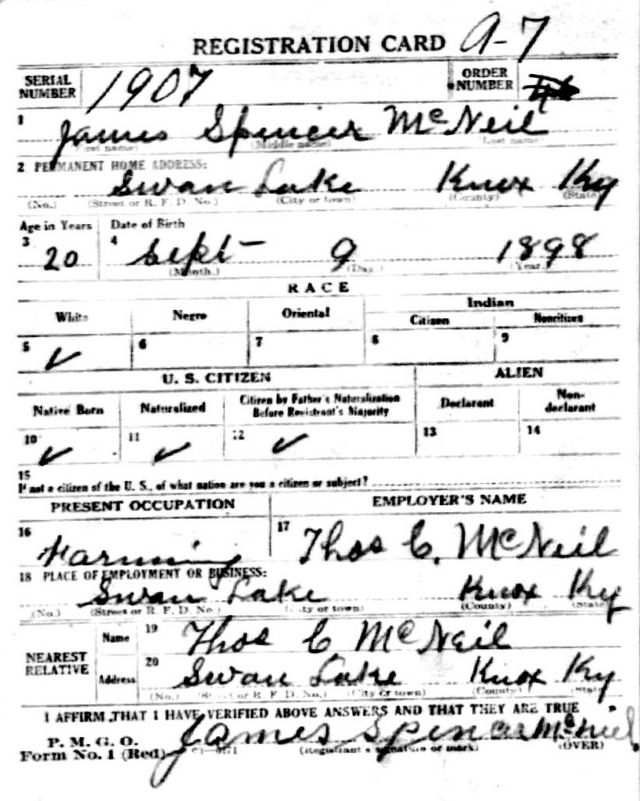 REGISTRATION CARD A-7
SERIAL NUMBER 1907 ORDER NUMBER
1 James Spencer McNeil
(First name) (Middle name) (Last name)
2 PERMANENT HOME ADDRESS:
Swan Lake Knox Ky
(No.) (Street or R. F. D. No.) (City or town) (County) (State)
Age in Years Date of Birth
3 20 4 Sept- 9 1898
(Month.) (Day.) (Year.)
RACE
White Negro Oriental Indian
Citizen Noncitizen
5 ✓ 6 7 8 9
U. S. CITIZEN ALIEN
Native Born Naturalized Citizen by Father's Naturalization Before Registrant's Majority Declarant Non-declarant
10 ✓ 11 ✓ 12 ✓ 13 14
15
If not a citizen of the U. S., of what nation are you a citizen or subject?
PRESENT OCCUPATION EMPLOYER'S NAME
16 Farming 17 Thos C. McNeil
18 PLACE OF EMPLOYMENT OR BUSINESS:
Swan Lake Knox Ky
(No.) (Street or R. F. D. No.) (City or town) (County) (State)
NEAREST RELATIVE Name 19 Thos C McNeil
Address 20 Swan Lake Knox Ky
(No.) (Street or R. F. D. No.) (City or town) (County) (State)
I AFFIRM THAT I HAVE VERIFIED ABOVE ANSWERS AND THAT THEY ARE TRUE
P. M. G. O.
Form No. 1 (Red) James Spencer McNeil
(Registrant's signature or mark) (OVER)